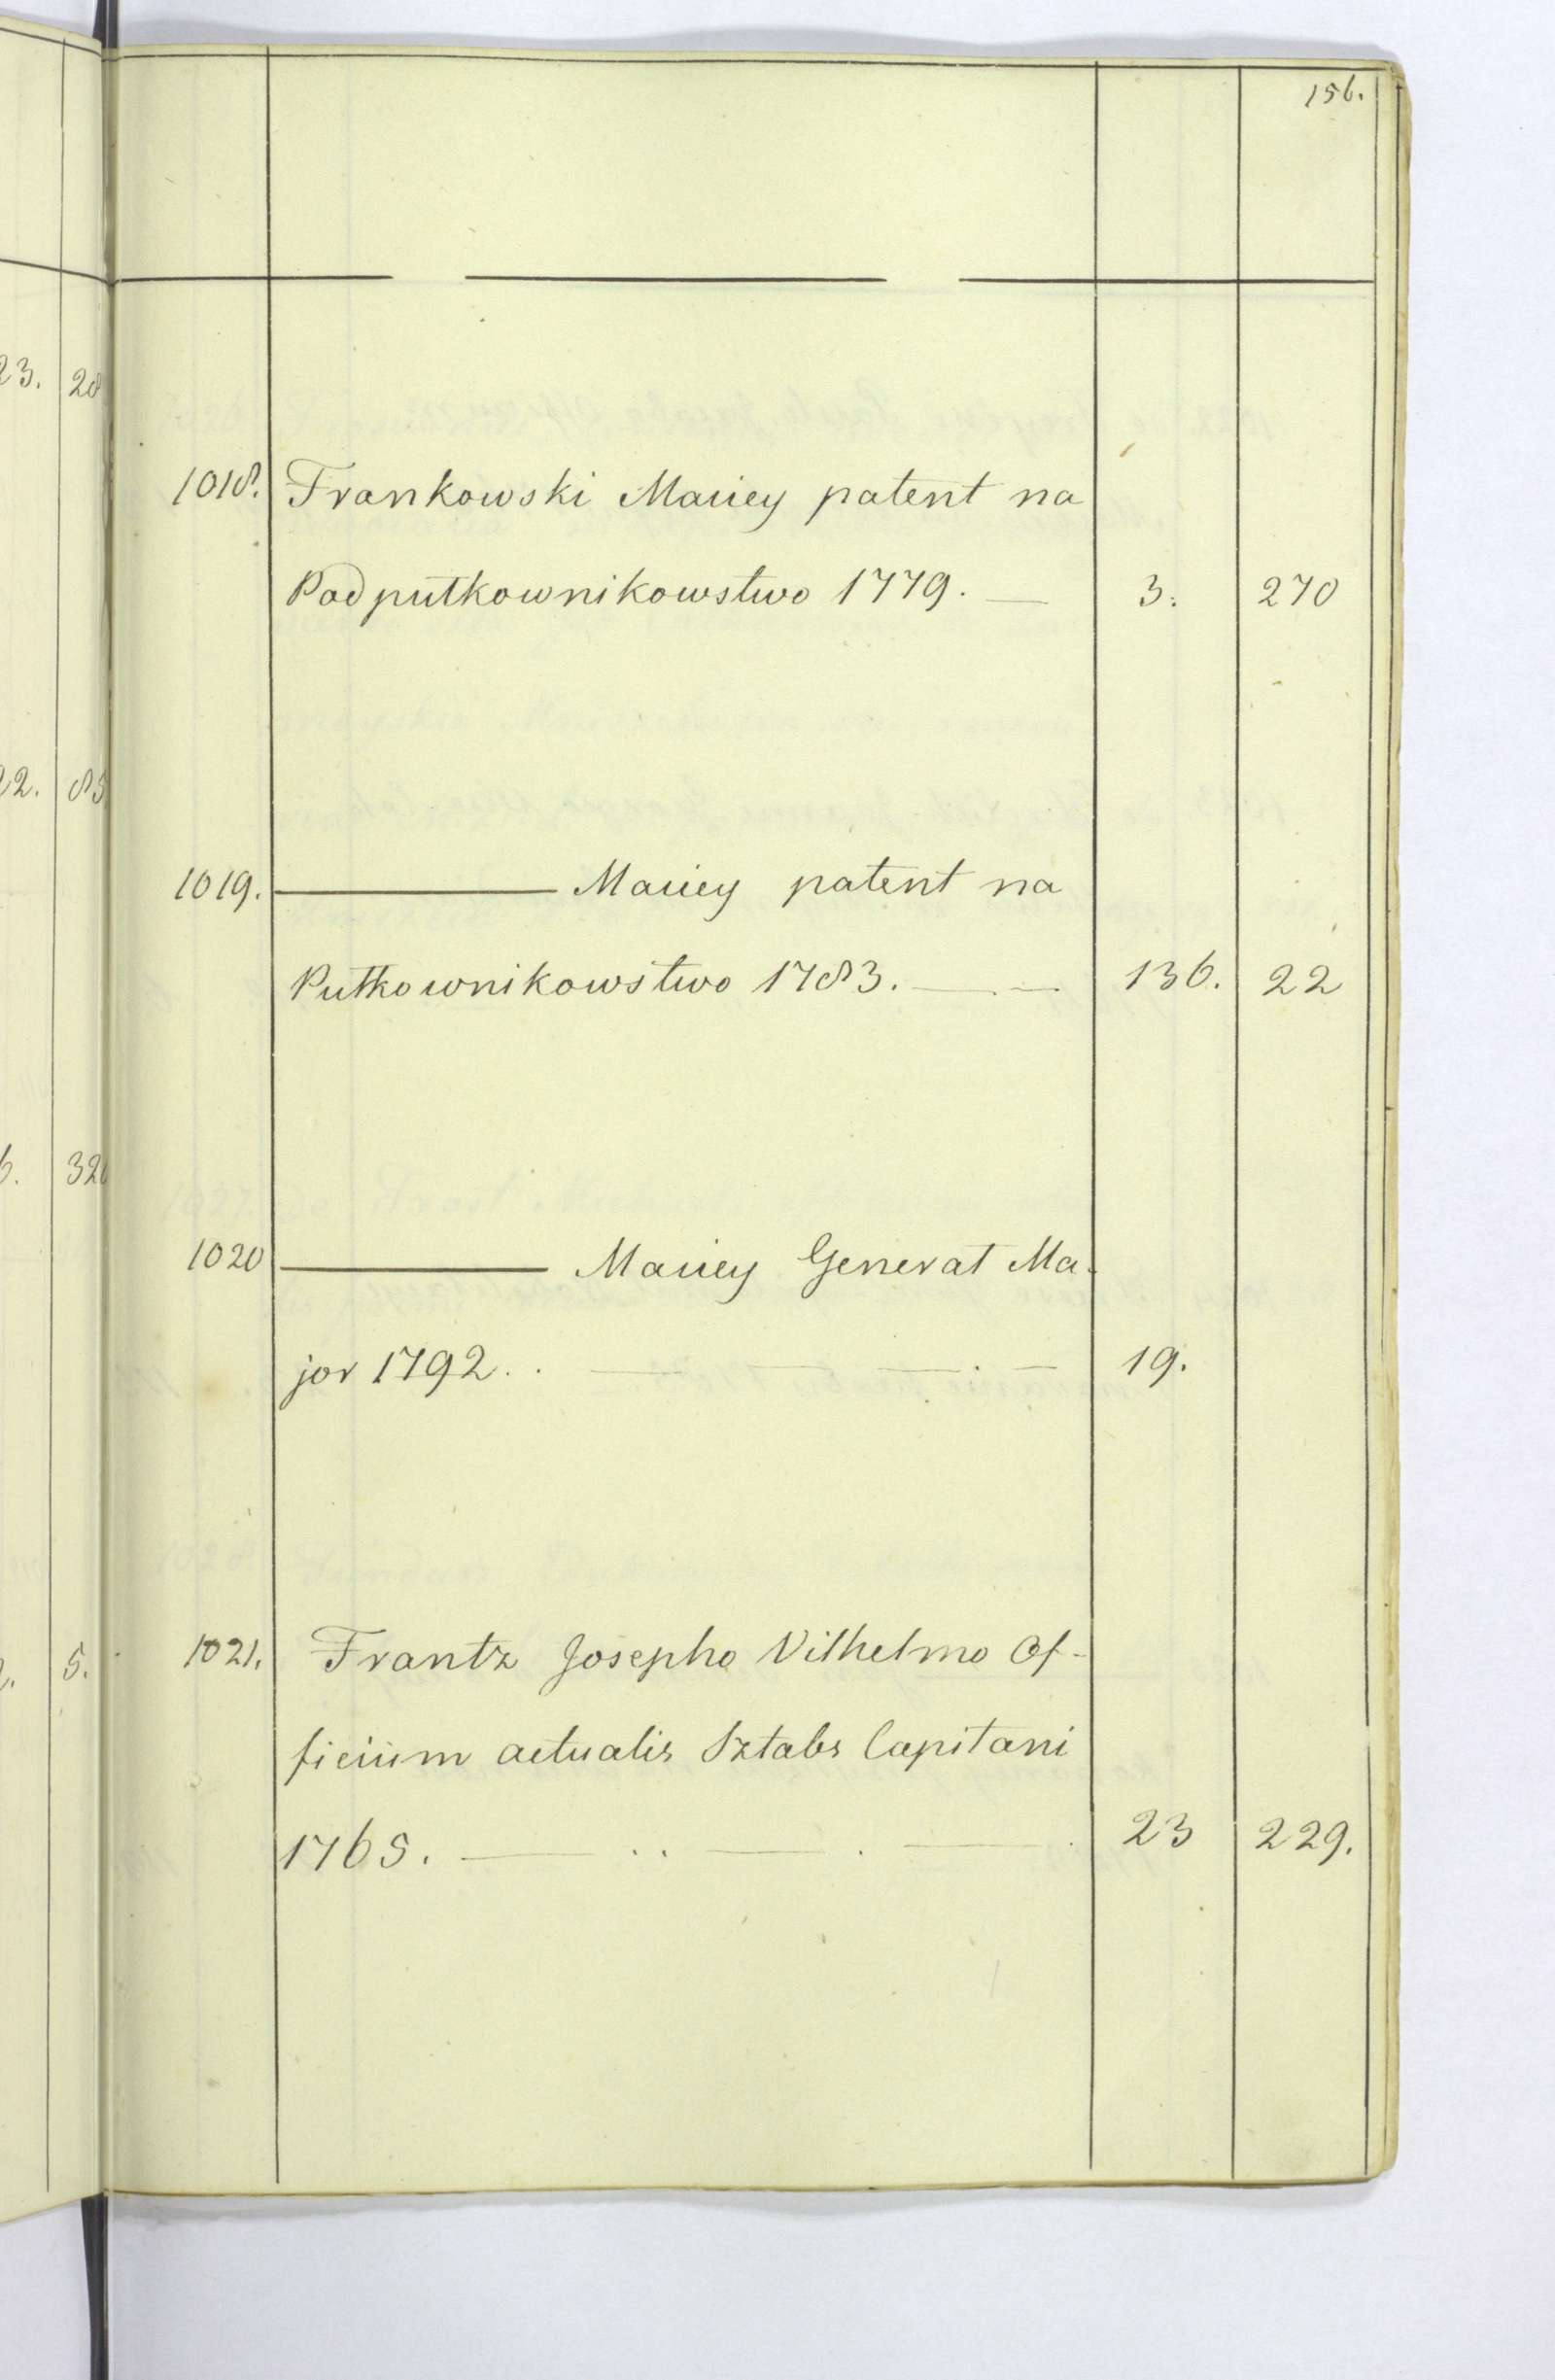 156.
23. 28
1018. Frankowski Maciey patent na
Podpułkownikowstwo 1779. — 3. 270
22. 85
1019. ——— Maciey patent na
Pułkownikowstwo 1783. — — 136. 22
6. 320
1020 ——— Maciey Generał Ma-
jor 1792. . — — — . — 19.
5.
1021. Frantz Josepho Vilhelmo Of-
ficium actualis Sztabs Capitani
1765. — . . — . — . 23 229.